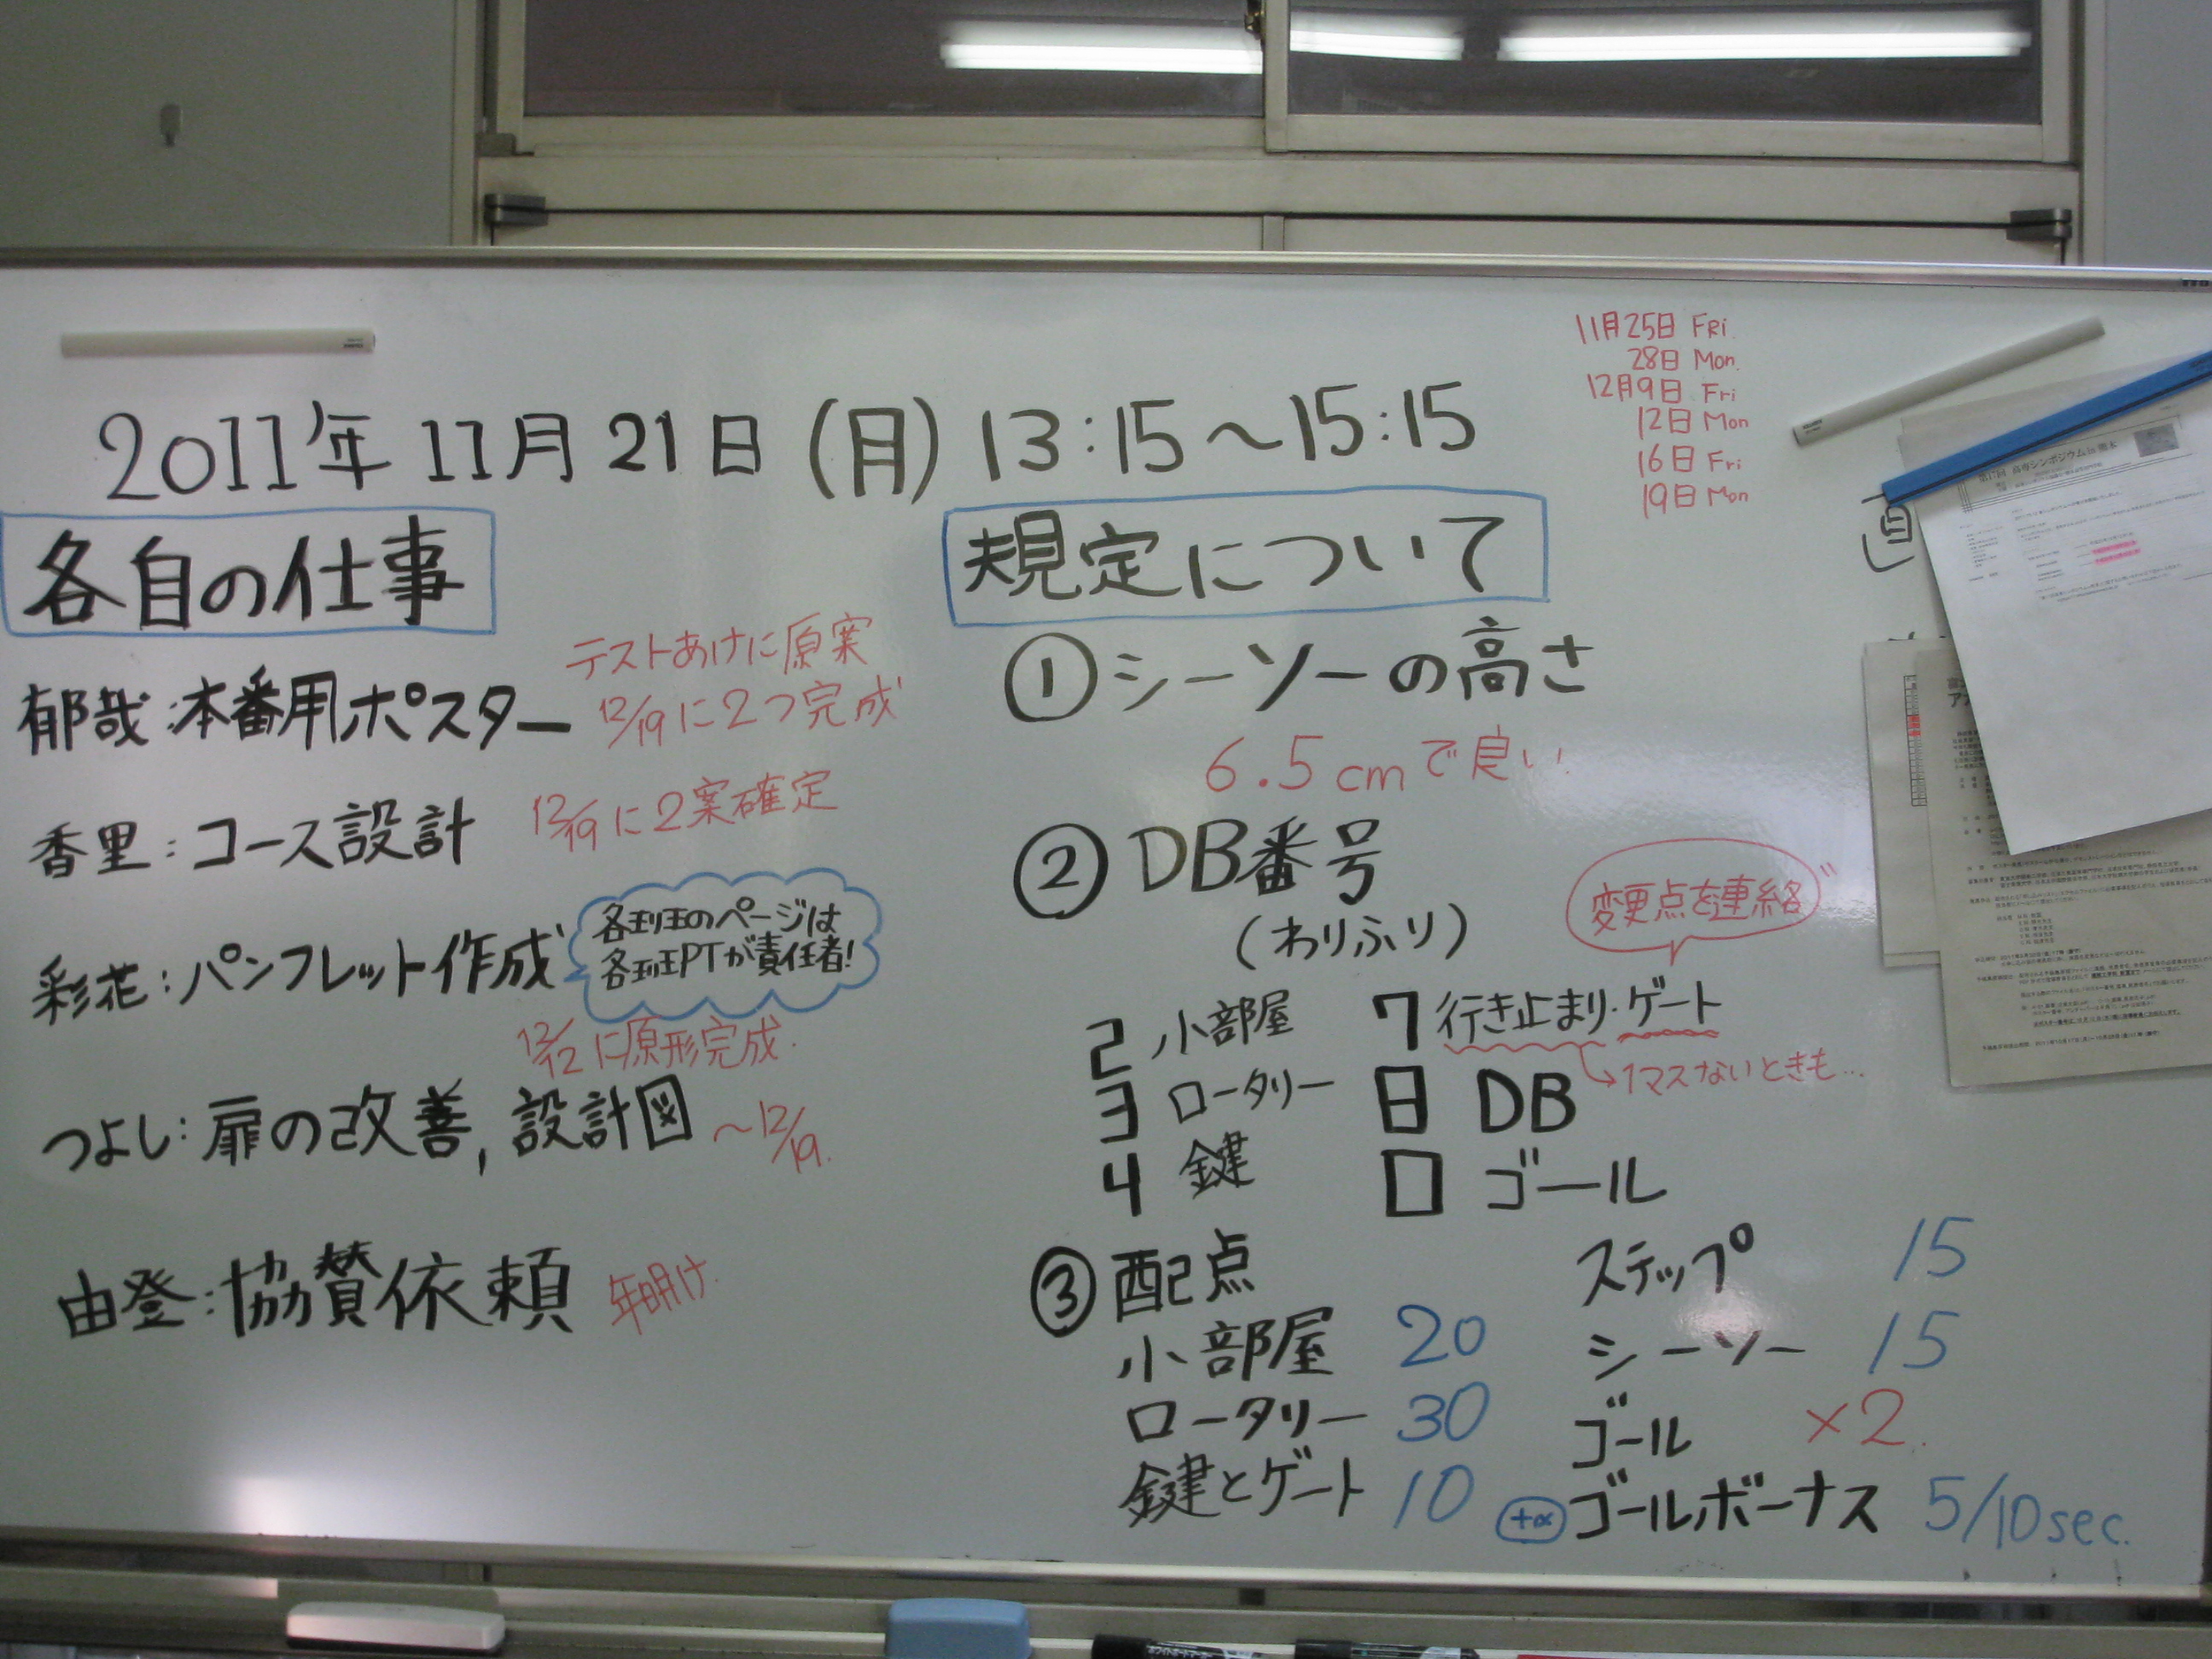 2011年 11月 21日 (月) 13:15〜15:15
11月25日 FRi.
28日 Mon.
12月9日 Fri
12日 Mon
16日 Fri
19日 Mon
各自の仕事
郁哉:本番用ポスター
テストあけに原案
12/19に2つ完成
香里:コース設計
12/19に2案確定
彩花:パンフレット作成
各班のページは
各班PTが責任者!
12/12に原形完成.
つよし:扉の改善,設計図
〜12/19.
由登:協賛依頼
年明け.
規定について
① シーソーの高さ
6.5cmで良い.
② DB番号
(わりふり)
変更点を連絡
2 小部屋
3 ロータリー
4 鍵
7 行き止まり・ゲート
→1マスないときも…
日 DB
口 ゴール
③ 配点
小部屋 20
ロータリー 30
鍵とゲート 10
ステップ 15
シーソー 15
ゴール ×2.
+α ゴールボーナス 5/10sec.
第17回 高専シンポジウムin熊本